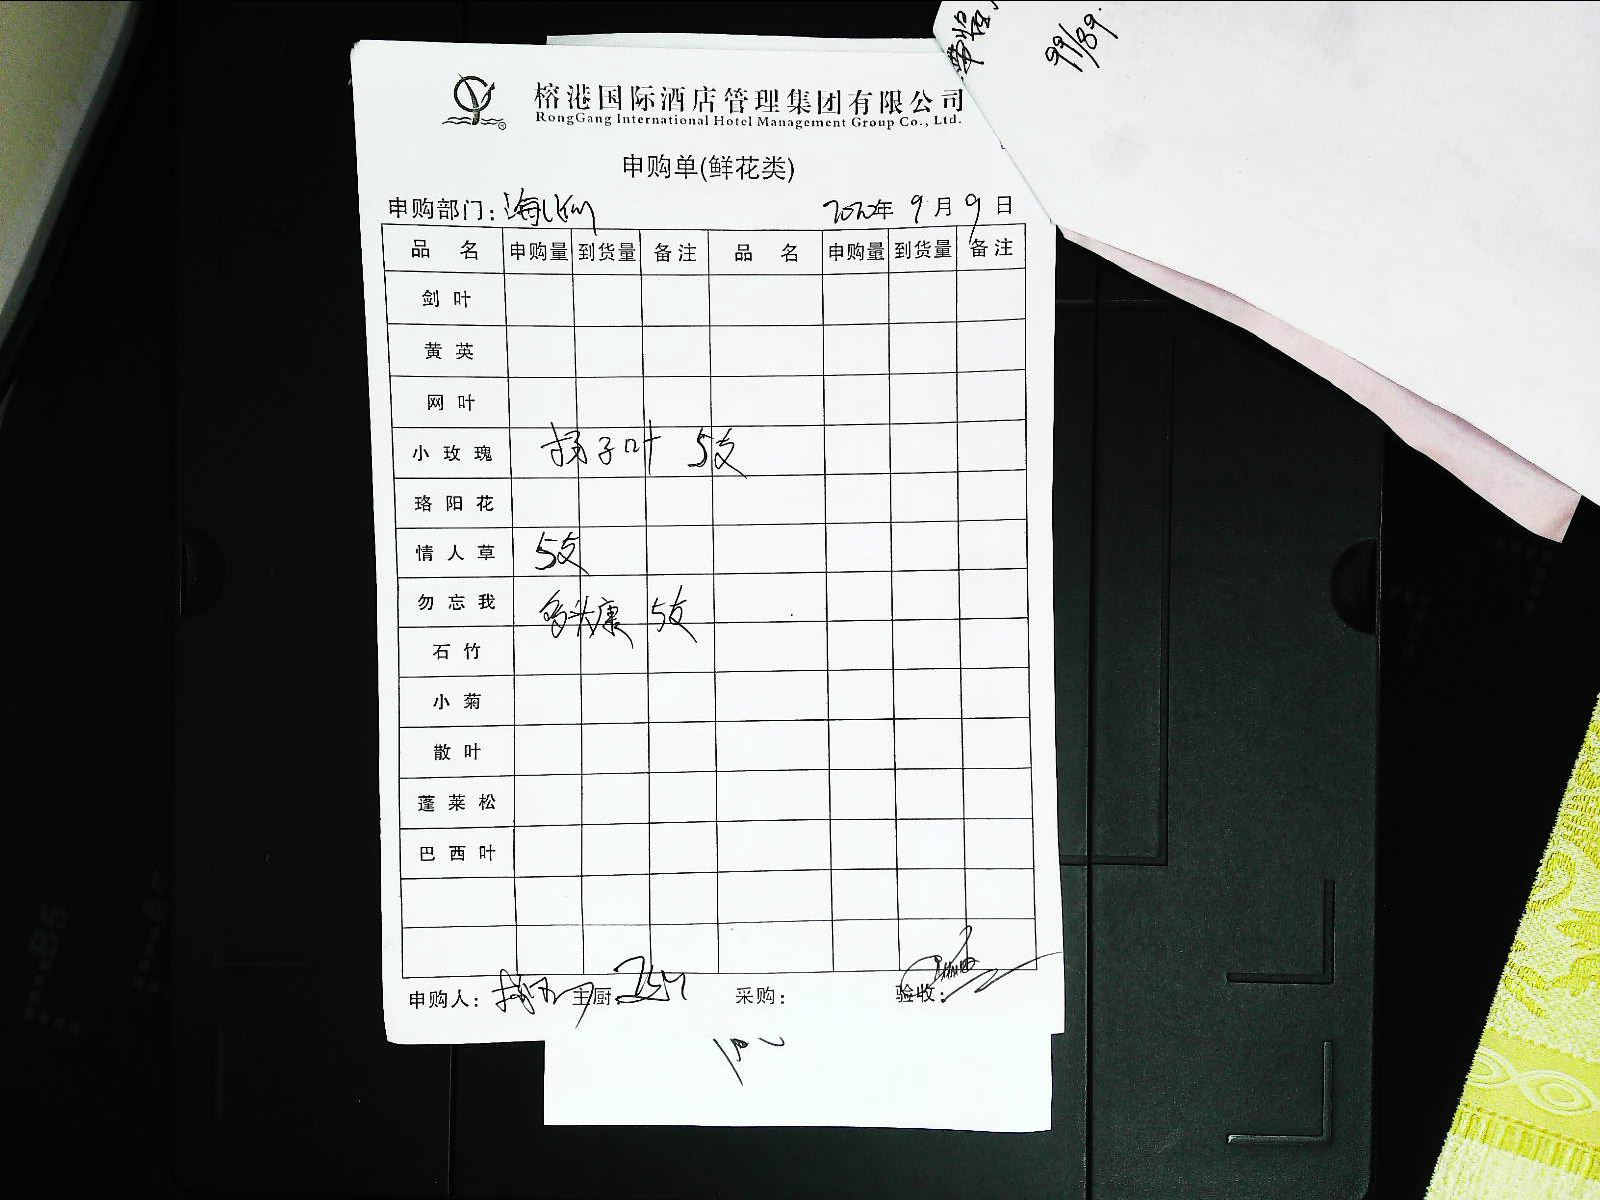 99/89.
榕港国际酒店管理集团有限公司
RongGang International Hotel Management Group Co., Ltd.
申购单(鲜花类)
申购部门: 2022年 9月 9日
品 名 申购量 到货量 备注 品 名 申购量 到货量 备注
剑叶
黄英
网叶
小玫瑰 扬子叶 5支
珞阳花
情人草 5支
勿忘我 多头康 5支
石竹
小菊
散叶
蓬莱松
巴西叶
申购人: 主厨: 采购: 验收: